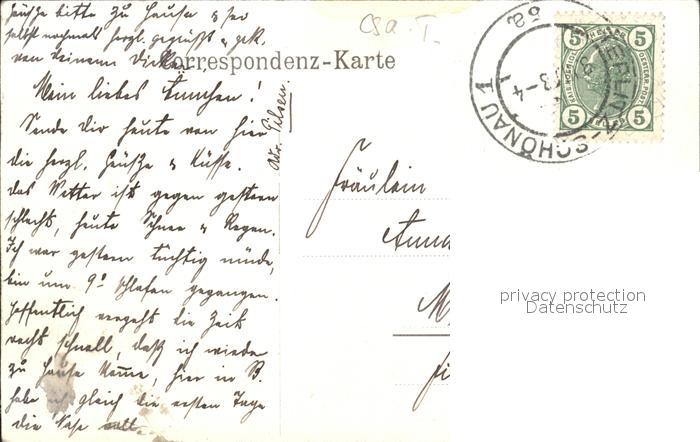 Grüße bitte zu Hause u. sei
selbst nochmals herzl. gegrüßt u. gek.
von Deinem
Correspondenz-Karte
Mein liebes Annchen!
Sende dir heute von hier
die herzl. Grüße u. Küsse.
Das Wetter ist gegen gestern
schlecht, heute Schnee u. Regen.
Ich war gestern tüchtig müde,
bin um 9h schlafen gegangen.
Hoffentlich vergeht die Zeit
recht schnell, daß ich wieder
zu Hause komme, hier in B.
habe ich gleich die ersten Tage
die Nase voll.
Adr. Pilsen.
Csa. I
Fräulein
Anna
M
TEPLITZ-SCHÖNAU 1
8a
5 5
5 5
privacy protection
Datenschutz